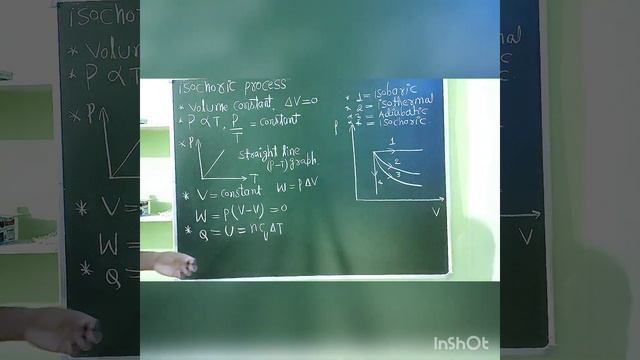 isochoric process
* Volume Constant, ΔV=0
* P ∝ T, P/T = constant
* P
T
straight line
(P-T) graph.
* V = constant W = PΔV
W = P(V-V) = 0
* Q = U = nCvΔT
* 1 = isobaric
* 2 = isothermal
* 3 = Adiabatic
* 4 = isochoric.
P
1
2
3
4
V
isochor
* Volum
* P ∝ T
* P
* V =
W =
* Q =
mal
c
V
InShOt